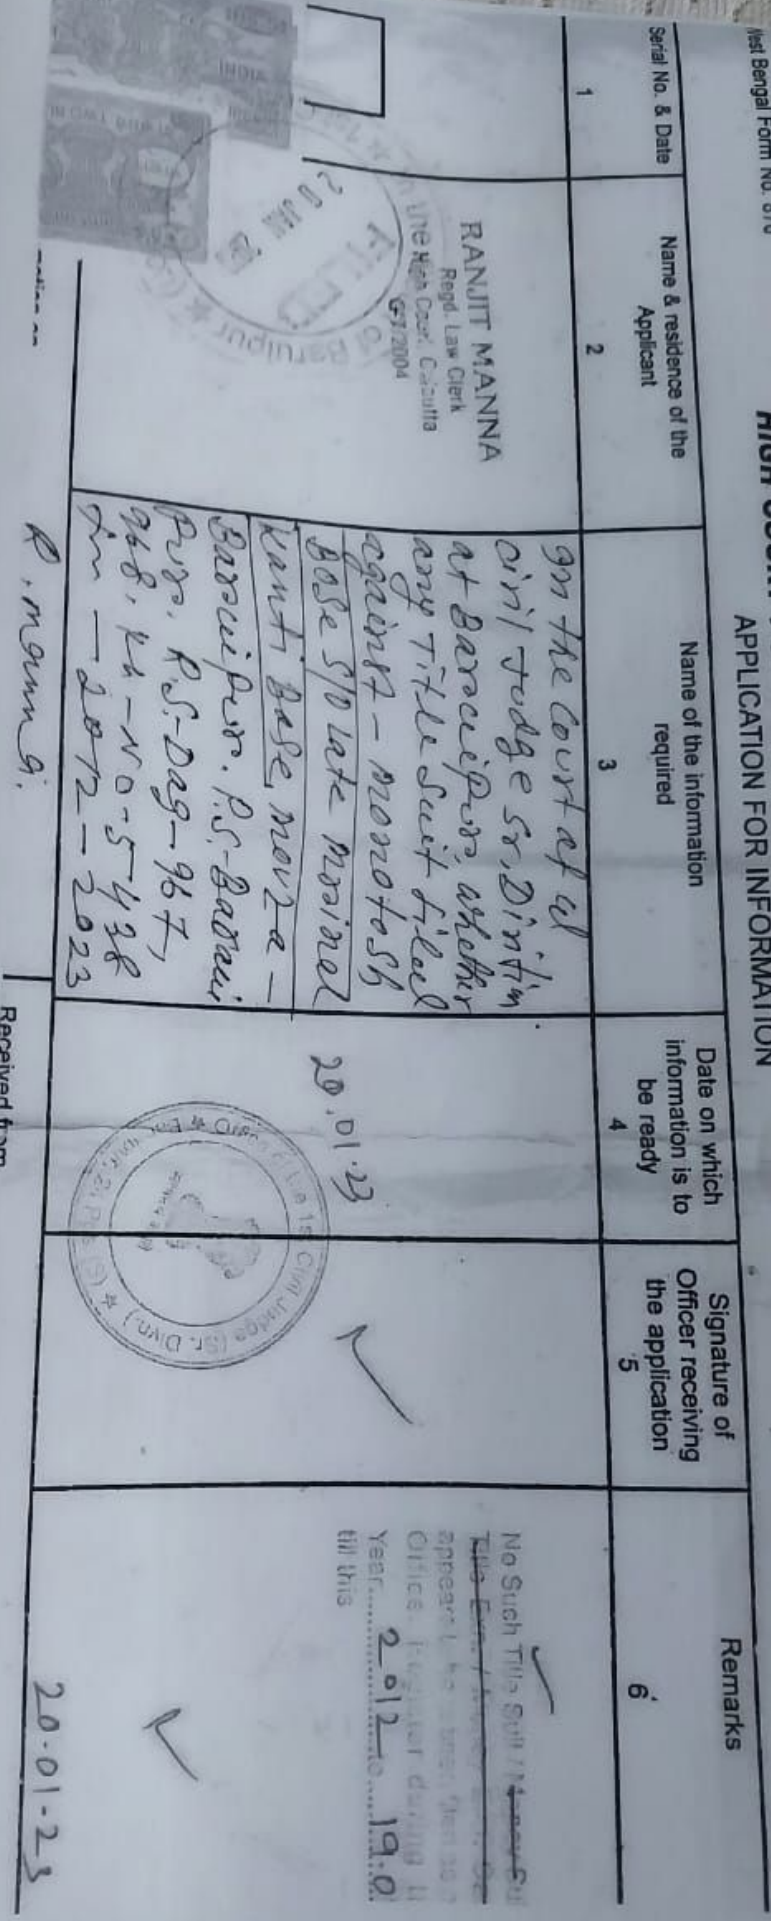 West Bengal Form No.
APPLICATION FOR INFORMATION
Serial No. & Date
Name & residence of the
Applicant
Name of the information
required
Date on which
information is to
be ready
Signature of
Officer receiving
the application
Remarks
1
2
3
4
5
6
RANJIT MANNA
Regd. Law Clerk
the High Court, Calcutta
2004
FILED
In the Court of Ld
Civil Judge Sr. Divition
at Baruipur, whether
any Title Suit filed
against - Monotosh
Bose S/O Late Mrinal
Kanti Bose, Mouza -
Baruipur. P.S.-Barui
Pur. R.S.-Dag-967,
968, Kh-No-5438
2012-2023
R. Manna.
20.01.23
Civil Judge (Sr. Divn.)
No Such Title Suit / Money Suit
Office register during
Year 2012 to 19.0
till this
20-01-23
Received from